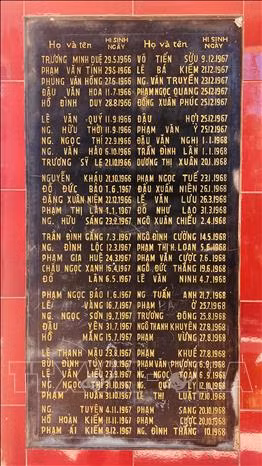 Họ và tên HI SINH NGÀY Họ và tên HI SINH NGÀY
TRƯƠNG MINH DUỆ 29.5.1966 VÕ TIẾN SỬU 9.12.1967
PHẠM VĂN TỊNH 29.5.1966 LÊ BÁ KIẾM 21.12.1967
PHÙNG VĂN HỒNG 27.6.1966 NG. VĂN TRUYỀN 23.12.1967
ĐẬU VĂN HOA 11.7.1966 PHẠM NGỌC QUANG 25.12.1967
HỒ ĐÌNH DUY 28.8.1966 ĐỒNG XUÂN PHÚC 25.12.1967
LÊ VĂN QUÝ 11.9.1966 ĐẬU HỢI 25.12.1967
NG. HỮU THỜ 11.9.1966 PHẠM VĂN Ý 25.12.1967
NG. NGỌC THI 22.9.1966 ĐẬU VĂN NGHI 1.1.1968
NG. VĂN HẢO 6.10.1966 TRẦN ĐÌNH LÂN 1.1.1968
TRƯƠNG SỸ LÊ 21.10.1966 DƯƠNG THỊ XUÂN 20.1.1968
NGUYỄN KHẨU 21.10.1966 PHẠM NGỌC TUẾ 23.1.1968
ĐỖ ĐỨC BẢO 1.6.1967 ĐẬU XUÂN NIÊN 26.1.1968
ĐẶNG XUÂN NIỆM 22.10.1966 LÊ VĂN LƯU 26.3.1968
PHẠM THỊ LÂN 1.1.1967 ĐỖ NHƯ LẠO 31.1.1968
NG. HỮU SÁNG 23.2.1967 NGÔ XUÂN CHIỂU 2.4.1968
TRẦN ĐÌNH GĂNG 7.3.1967 NGÔ ĐÌNH CƯƠNG 14.5.1968
NG. ĐÌNH LỘC 12.3.1967 PHẠM THỊ H. LOAN 5.6.1968
PHẠM GIA HUỆ 24.3.1967 PHẠM VĂN CƯỢC 7.6.1968
CHÂU NGỌC XANH 15.4.1967 NGÔ ĐỨC THẮNG 19.6.1968
ĐỖ LÂN 6.5.1967 LÊ VĂN NINH 4.7.1968
PHẠM NGỌC BẢO 1.6.1967 NG. TUẤN ANH 27.7.1968
LÊ VÀNG 16.7.1967 PHẠM Ở 25.7.1968
NG. NGỌC SƠN 19.7.1967 TRƯƠNG ĐỒNG 25.8.1968
ĐẬU YÊN 31.7.1967 NGÔ THANH KHUYẾN 27.8.1968
HỒ MĂNG 15.7.1967 PHẠM VỪNG 27.8.1968
LÊ THANH MẬU 23.8.1967 PHẠM KHUÊ 27.8.1968
BÙI ĐÌNH TÙY 21.9.1967 PHẠM VĂN PHƯƠNG 6.9.1968
LÊ VĂN ĐẠT 23.9.1967 LÊ NG. ĐOAN 6.9.1968
NG. NGỌC THỊ 31.10.1967 NG. QUÝ 17.10.1968
PHẠM HUÂN 31.10.1967 LÊ THỊ LUẬT 17.10.1968
NG. TUYÊN 4.11.1967 PHẠM SANG 20.10.1968
HỒ HOÀN KIẾM 11.11.1967 PHẠM CHỨC 20.10.1968
PHẠM ÁI KIẾM 9.12.1967 NG. ĐÌNH THẮNG 10.1968